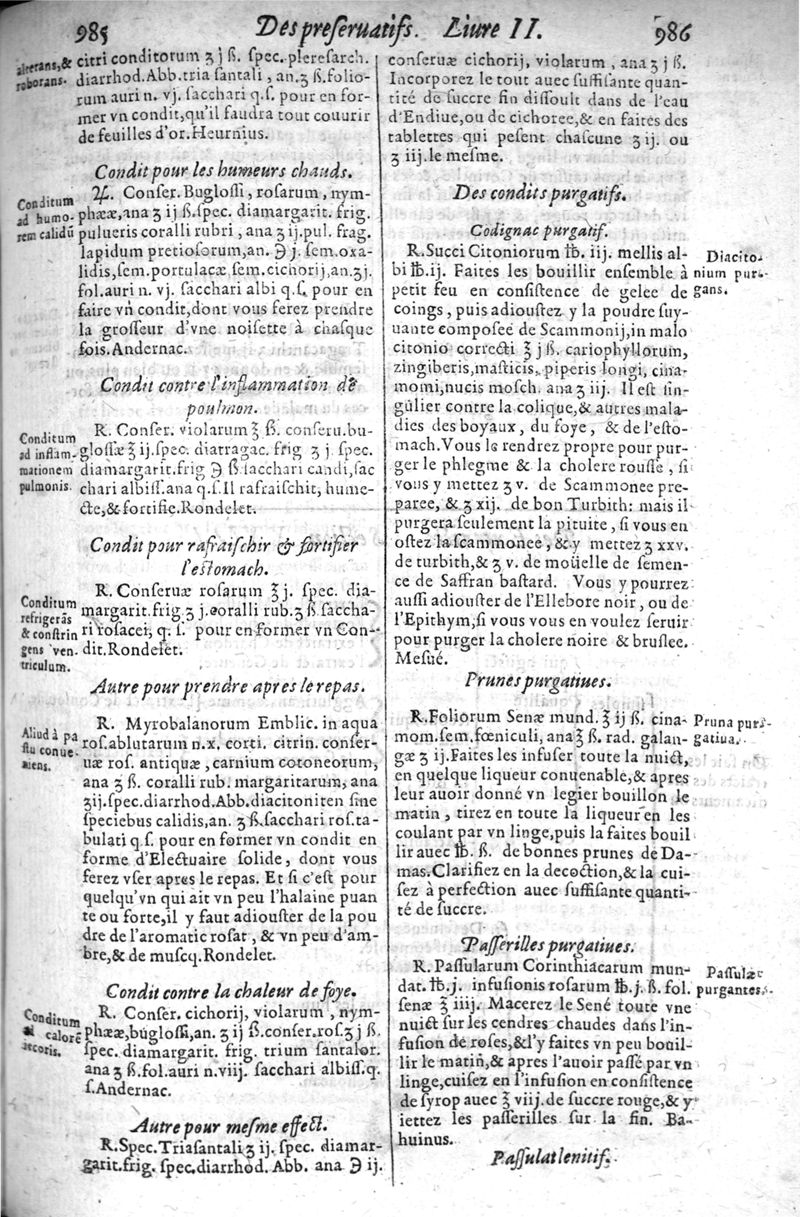 985 Des preseruatifs. Liure II. 986
alterans,&
roborans.
citri conditorum ʒ j ß. spec. pleresarch.
diarrhod.Abb.tria santali, an.ʒ ß.folio-
rum auri n. vj. sacchari q.s. pour en for-
mer vn condit,qu'il faudra tout couurir
de feuilles d'or.Heurnius.
Condit pour les humeurs chauds.
Conditum
ad humo-
rem calidũ
♃. Conser. Buglossi, rosarum, nym-
phææ,ana ʒ ij ß.spec. diamargarit. frig.
pulueris coralli rubri, ana ʒ ij.pul. frag.
lapidum pretiosorum,an. ℈ j. sem.oxa-
lidis,sem.portulacæ,sem.cichorij,an.ʒj.
fol.auri n. vj. sacchari albi q.s. pour en
faire vn condit,dont vous ferez prendre
la grosseur d'vne noisette à chasque
fois.Andernac.
Condit contre l'inflammation de
poulmon.
Conditum
ad inflam-
mationem
pulmonis.
R. Conser. violarum ℥ ß. conseru.bu-
glossæ ℥ ij.spec. diatragac. frig ʒ j. spec.
diamargarit.frig ℈ ß.sacchari candi,sac
chari albiss.ana q.s.Il rafraischit, hume-
cte,& fortifie.Rondelet.
Condit pour rafraischir & fortifier
l'estomach.
Conditum
refrigerãs
& constrin
gens ven-
triculum.
R. Conseruæ rosarum ℥ j. spec. dia-
margarit.frig.ʒ j.coralli rub.ʒ ß saccha-
ri rosacei, q. s. pour en former vn Con-
dit.Rondelet.
Autre pour prendre apres le repas.
Aliud à pa
stu conue-
niens.
R. Myrobalanorum Emblic. in aqua
ros.ablutarum n.x. corti. citrin. conser-
uæ ros. antiquæ, carnium cotoneorum,
ana ʒ ß. coralli rub. margaritarum, ana
ʒij.spec.diarrhod.Abb.diacitoniten sine
speciebus calidis,an. ʒ ß.sacchari ros.ta-
bulati q.s. pour en former vn condit en
forme d'Electuaire solide, dont vous
ferez vser apres le repas. Et si c'est pour
quelqu'vn qui ait vn peu l'halaine puan
te ou forte,il y faut adiouster de la pou
dre de l'aromatic rosat, & vn peu d'am-
bre,& de muscq.Rondelet.
Condit contre la chaleur de foye.
Conditum
ad calorẽ
iecoris.
R. Conser. cichorij, violarum, nym-
phææ,buglossi,an. ʒ ij ß.conser.ros.ʒ j ß.
spec. diamargarit. frig. trium santalor.
ana ʒ ß.fol.auri n.viij. sacchari albiss.q.
s.Andernac.
Autre pour mesme effect.
R.Spec.Triasantali ʒ ij. spec. diamar-
garit.frig. spec.diarrhod. Abb. ana ℈ ij.
conseruæ cichorij, violarum, ana ʒ j ß.
Incorporez le tout auec suffisante quan-
tité de succre fin dissoult dans de l'eau
d'Endiue,ou de cichoree,& en faites des
tablettes qui pesent chascune ʒ ij. ou
ʒ iij.le mesme.
Des condits purgatifs.
Codignac purgatif.
Diacito-
nium pur-
gans.
R.Succi Citoniorum ℔. iij. mellis al-
bi ℔.ij. Faites les bouillir ensemble à
petit feu en consistence de gelee de
coings, puis adioustez y la poudre suy-
uante composee de Scammonij,in malo
citonio correcti ℥ j ß. cariophyllorum,
zingiberis,masticis, piperis longi, cina-
momi,nucis mosch. ana ʒ iij. Il est sin-
gulier contre la colique,& autres mala-
dies des boyaux, du foye, & de l'esto-
mach.Vous le rendrez propre pour pur-
ger le phlegme & la cholere rousse, si
vous y mettez ʒ v. de Scammonee pre-
paree, & ʒ xij. de bon Turbith: mais il
purgera seulement la pituite, si vous en
ostez la scammonee, & y mettez ʒ xxv.
de turbith,& ʒ v. de moüelle de semen-
ce de Saffran bastard. Vous y pourrez
aussi adiouster de l'Ellebore noir, ou de
l'Epithym,si vous vous en voulez seruir
pour purger la cholere noire & bruslee.
Mesué.
Prunes purgatiues.
Pruna pur-
gatiua.
R.Foliorum Senæ mund. ℥ ij ß. cina-
mom.sem.fœniculi, ana ℥ ß. rad. galan-
gæ ʒ ij.Faites les infuser toute la nuict,
en quelque liqueur conuenable,& apres
leur auoir donné vn legier bouillon le
matin, tirez en toute la liqueur en les
coulant par vn linge,puis la faites bouil
lir auec ℔. ß. de bonnes prunes de Da-
mas.Clarifiez en la decoction,& la cui-
sez à perfection auec suffisante quanti-
té de succre.
Passerilles purgatiues.
Passulæ
purgantes.
R. Passularum Corinthiacarum mun-
dat. ℔.j. infusionis rosarum ℔.j. ß. fol.
senæ ℥ iiij. Macerez le Sené toute vne
nuict sur les cendres chaudes dans l'in-
fusion de roses,&l'y faites vn peu bouil-
lir le matin, & apres l'auoir passé par vn
linge,cuisez en l'infusion en consistence
de syrop auec ℥ viij.de succre rouge,& y
iettez les passerilles sur la fin. Ba-
huinus.
Passulat lenitif.